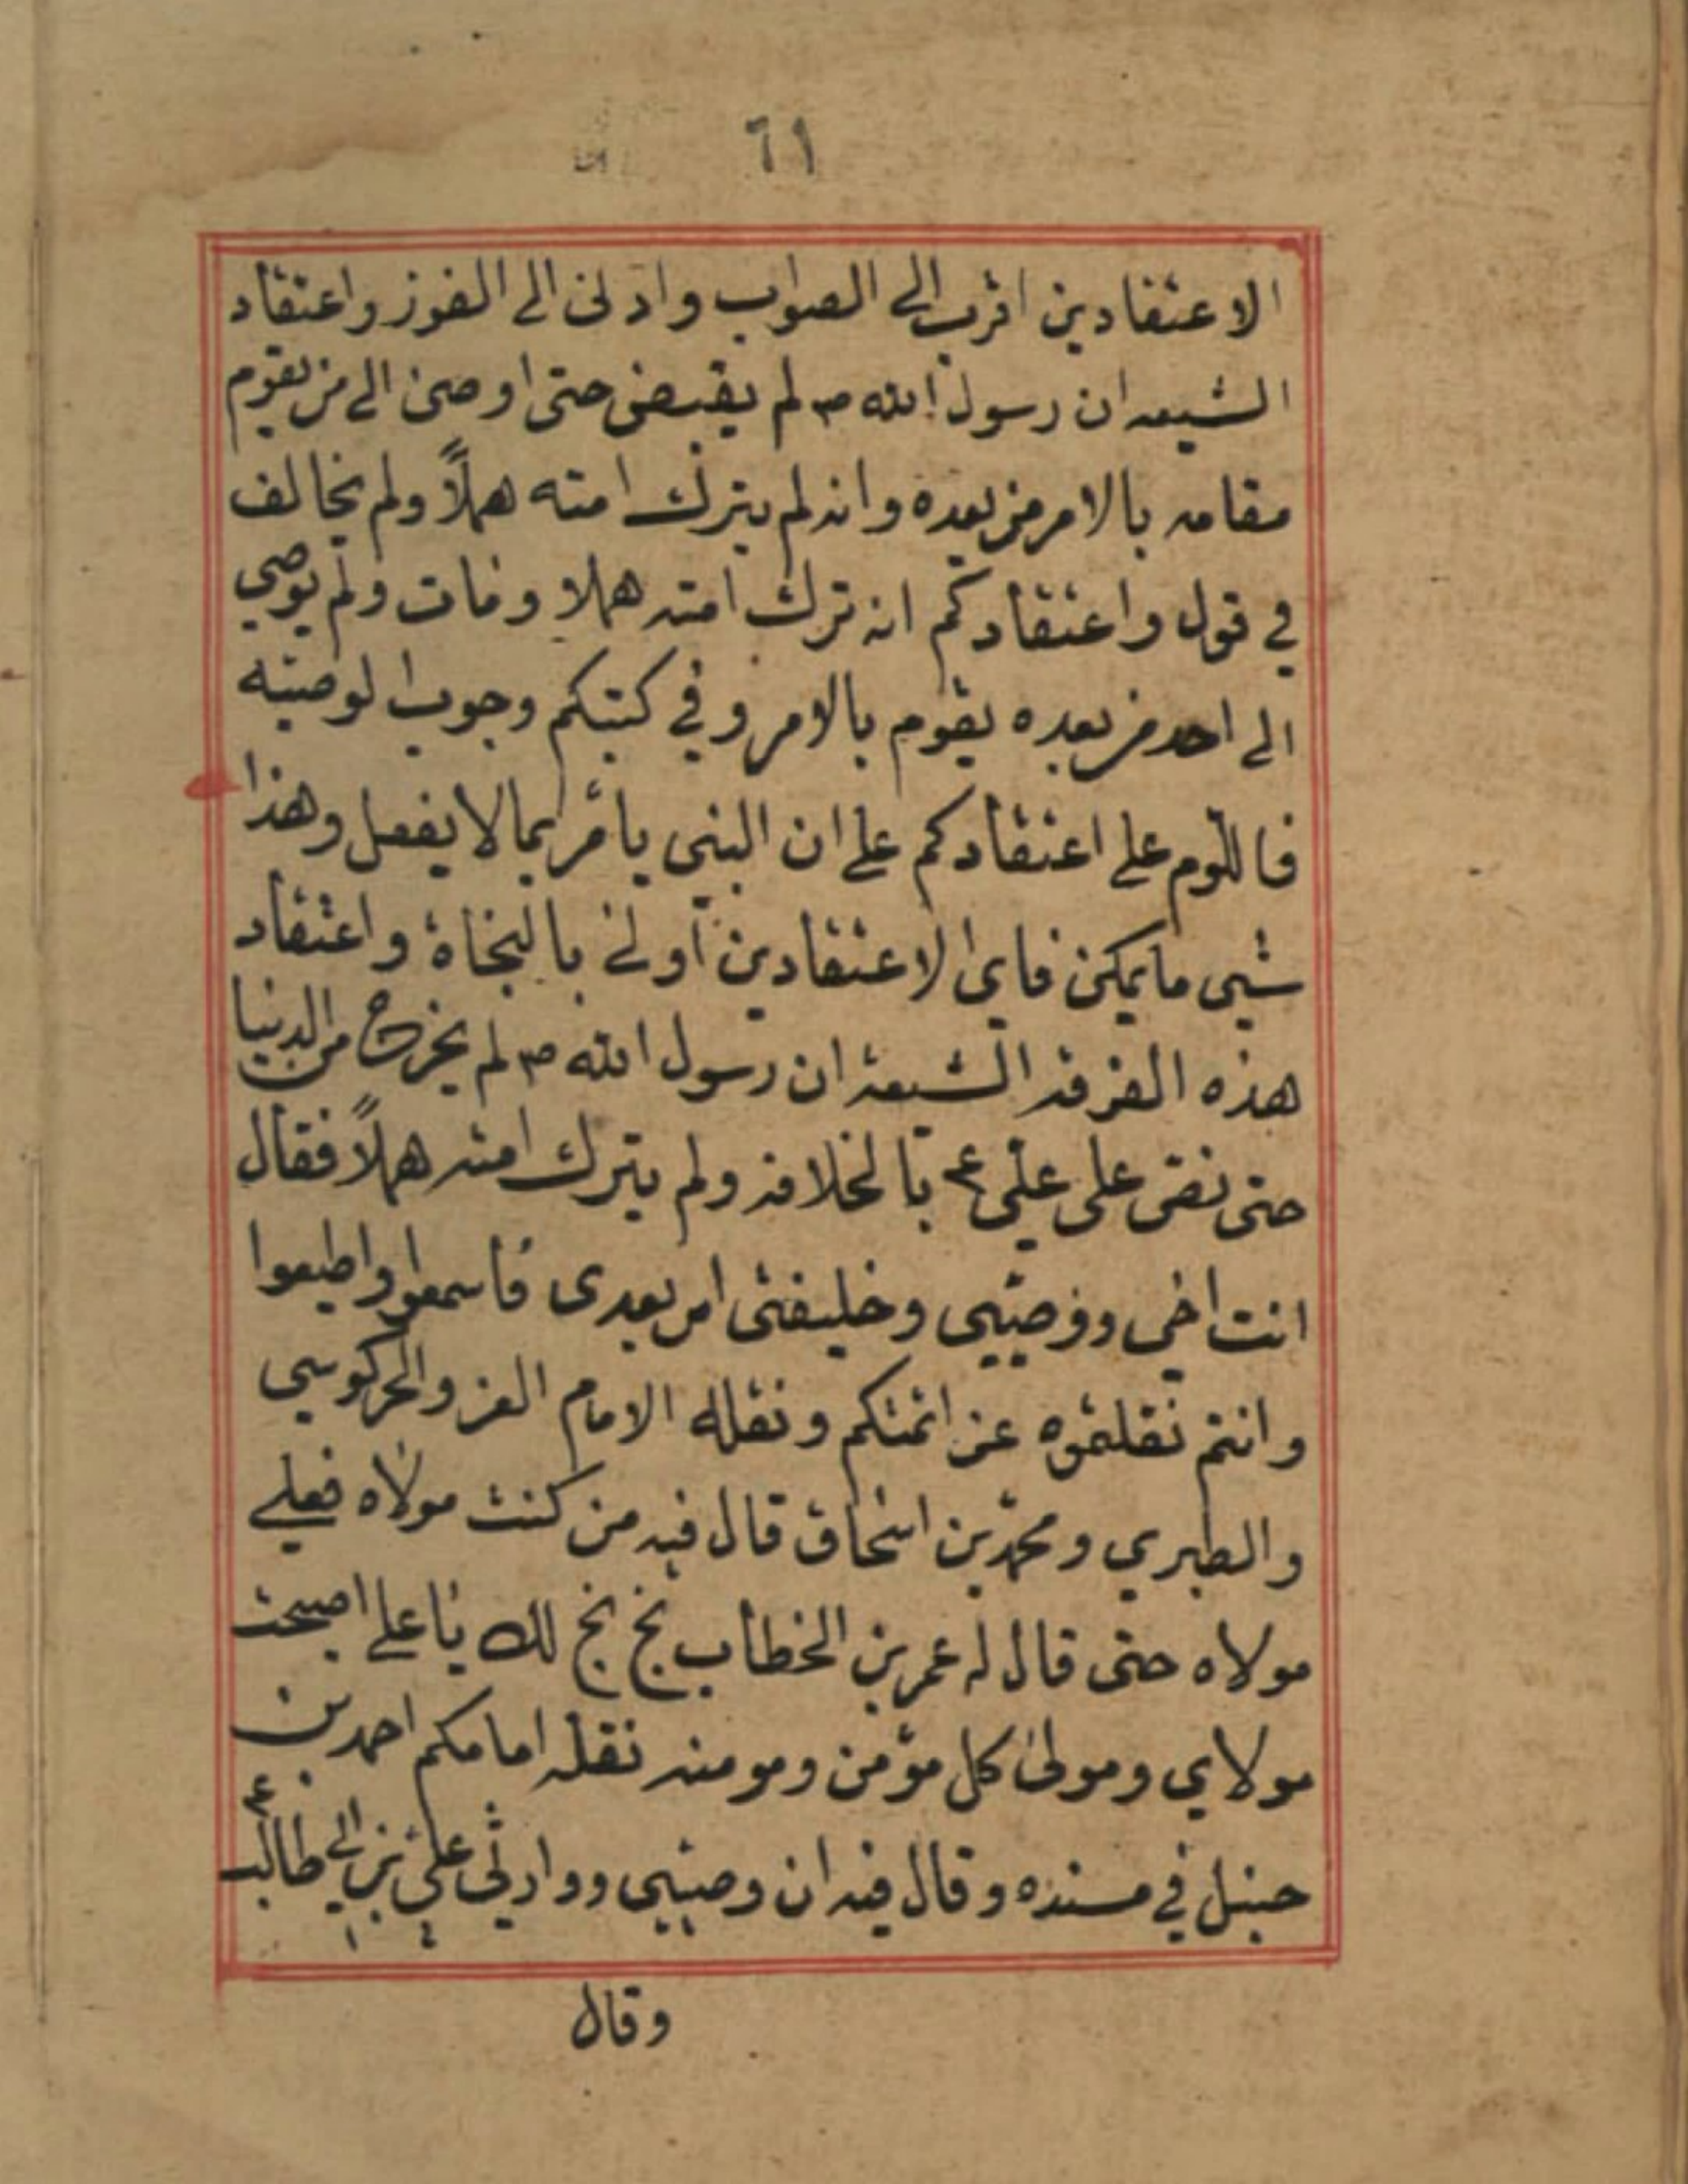 ٦١
الاعتقادين اقرب الى الصواب وادنى الى الفوز واعتقاد
الشيعه ان رسول الله ص لم يقبض حتى اوصى الى من يقوم
مقامه بالامر من بعده وانه لم يترك امته هملاً ولم يخالف
في قول واعتقادكم انه ترك امته هملا ومات ولم يوصي
الى احد من بعده يقوم بالامر وفي كتبكم وجوب الوصية
فاللوم على اعتقادكم على ان النبي يأمر بما لا يفعل وهذا
شيى ما يمكن فاي الاعتقادين اولى بالنجاة واعتقاد
هذه الفرقة الشيعة ان رسول الله ص لم يخرج من الدنيا
حتى نص على علي ع بالخلافة ولم يترك امته هملاً فقال
انت اخي ووصيي وخليفتي من بعدى فاسمعوا واطيعوا
وانتم نقلتموه عن ائمتكم ونقله الامام والخركوسي
والطبري ومحمد بن اسحاق قال فيه من كنت مولاه فعلي
مولاه حتى قال له عمر بن الخطاب بخ بخ لك يا علي اصبحت
مولاي ومولى كل مؤمن ومومنه نقله امامكم احمد بن
حنبل في مسنده وقال فيه ان وصيي ووارثي علي بن ابي طالب ع
وقال